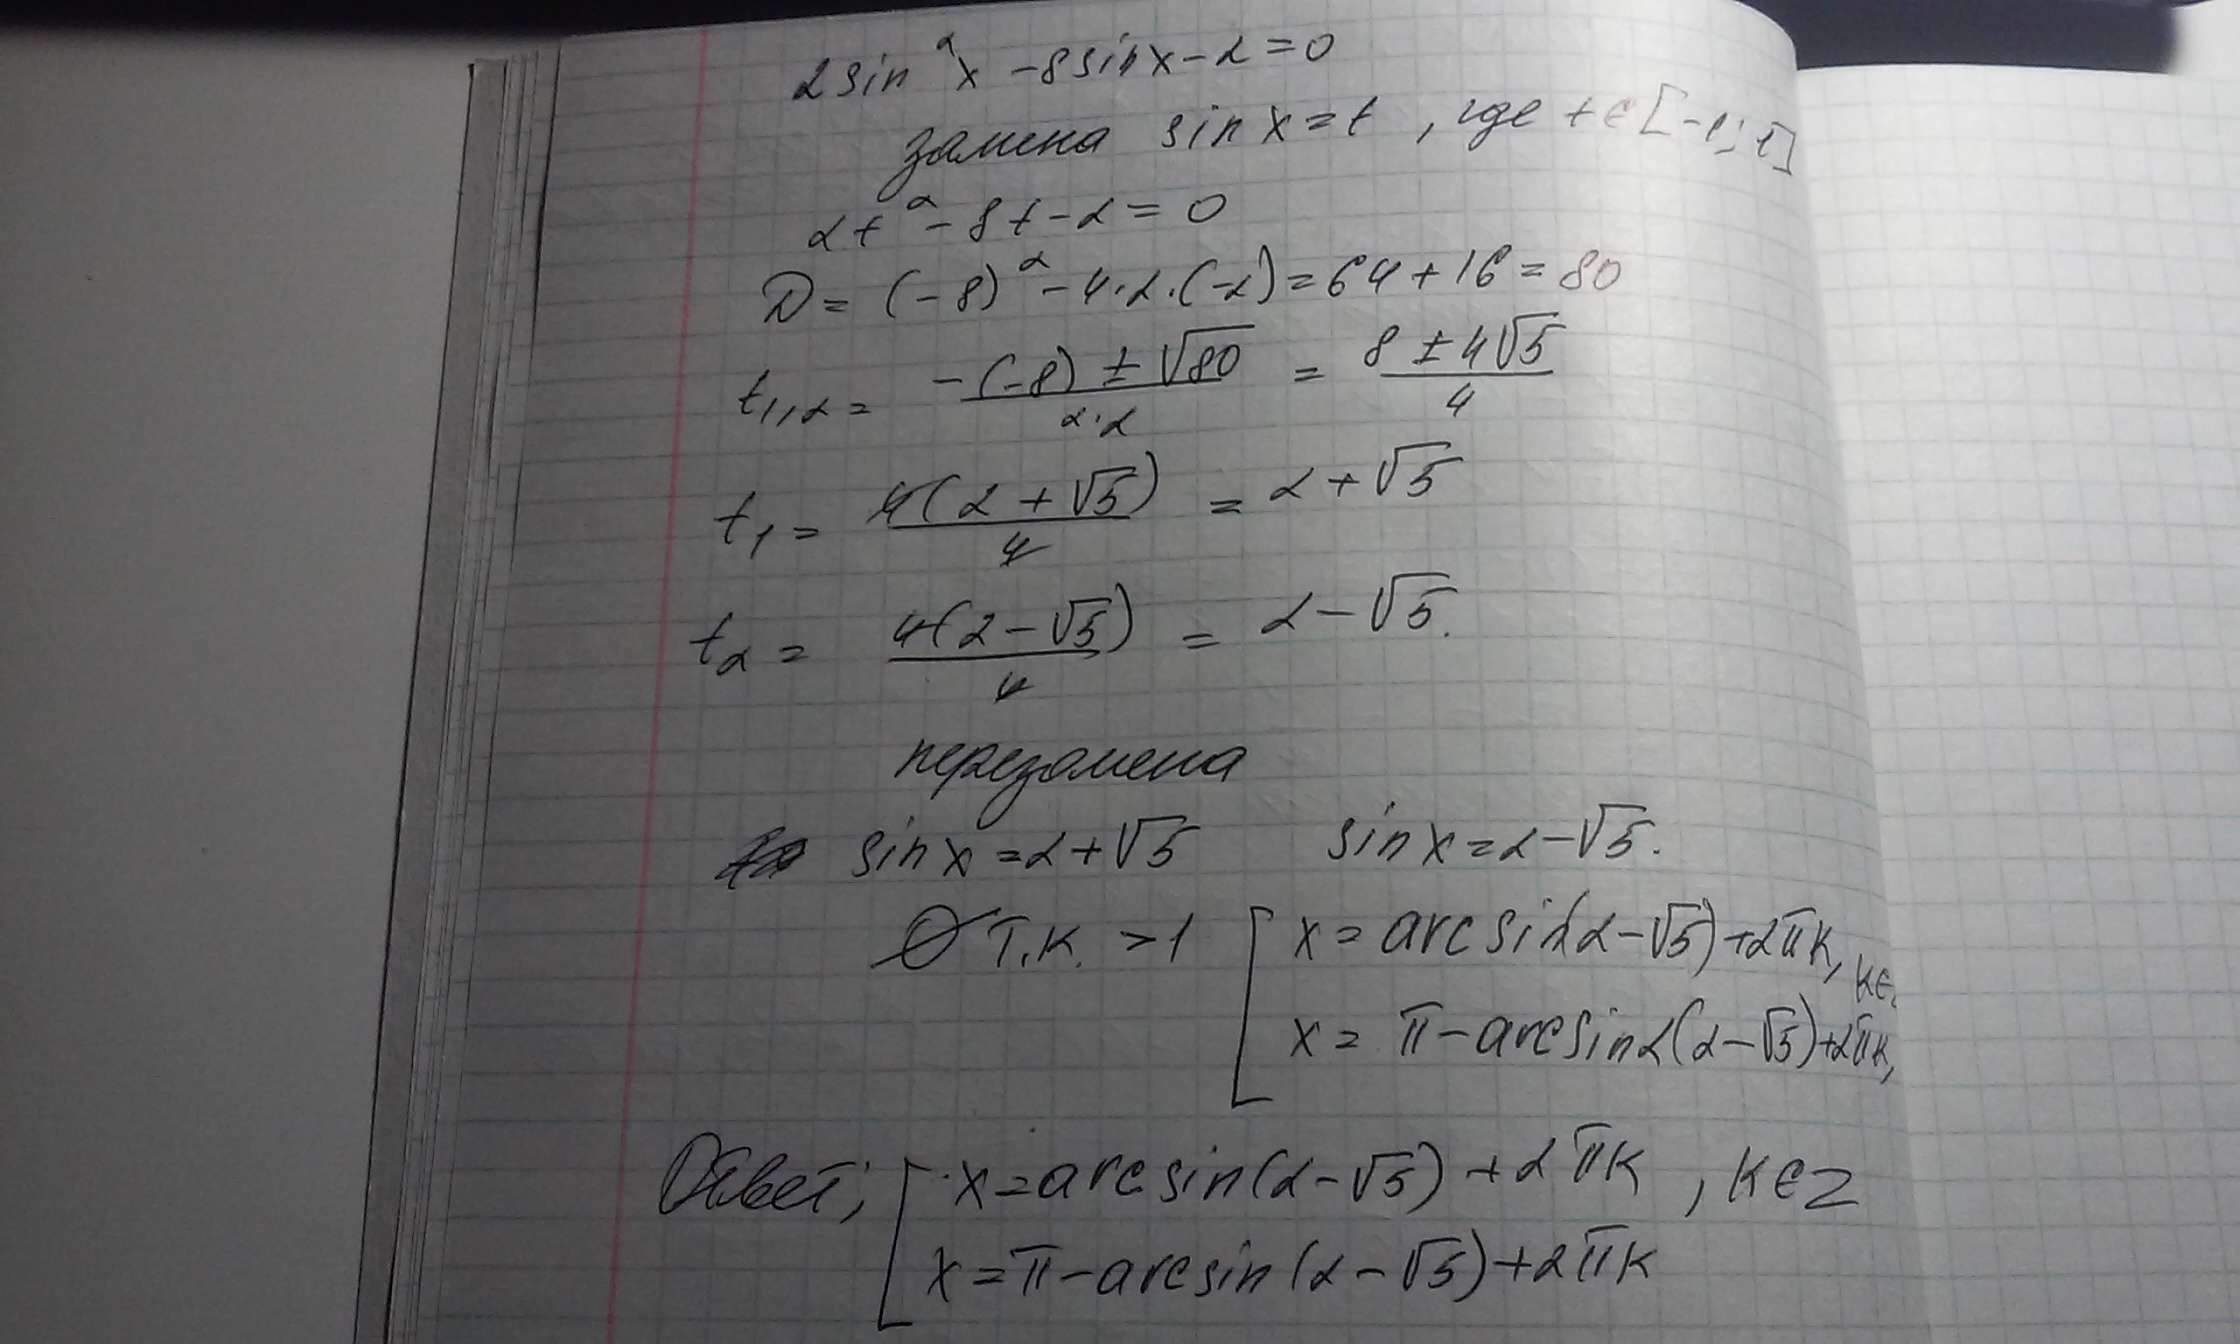 2 sin²x - 8 sin x - 2 = 0
замена sin x = t , где t ∈ [-1; 1]
2t² - 8t - 2 = 0
D = (-8)² - 4·2·(-2) = 64 + 16 = 80
t₁,₂ = (-(-8) ± √80)/(2·2) = (8 ± 4√5)/4
t₁ = 4(2 + √5)/4 = 2 + √5
t₂ = 4(2 - √5)/4 = 2 - √5.
перезамена
sin x = 2 + √5 sin x = 2 - √5.
∅ т.к. > 1 [ x = arcsin(2 - √5) + 2πk, k ∈
x = π - arcsin2(2 - √5) + 2πk,
Ответ; [ x = arcsin(2 - √5) + 2πk , k ∈ Z
x = π - arcsin(2 - √5) + 2πk